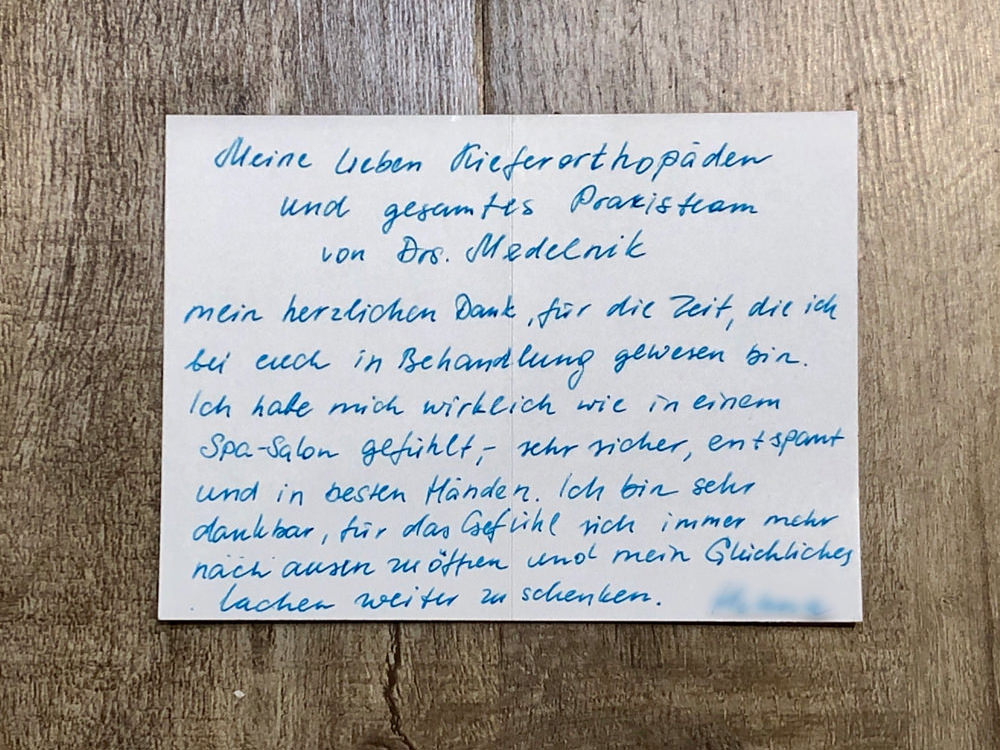 Meine lieben Kieferorthopäden
und gesamtes Praxisteam
von Drs. Medelnik
mein herzlichen Dank, für die Zeit, die ich
bei euch in Behandlung gewesen bin.
Ich habe mich wirklich wie in einem
Spa-Salon gefühlt,- sehr sicher, entspannt
und in besten Händen. Ich bin sehr
dankbar, für das Gefühl sich immer mehr
nach ausen zu öffnen und mein Glückliches
lachen weiter zu schenken.